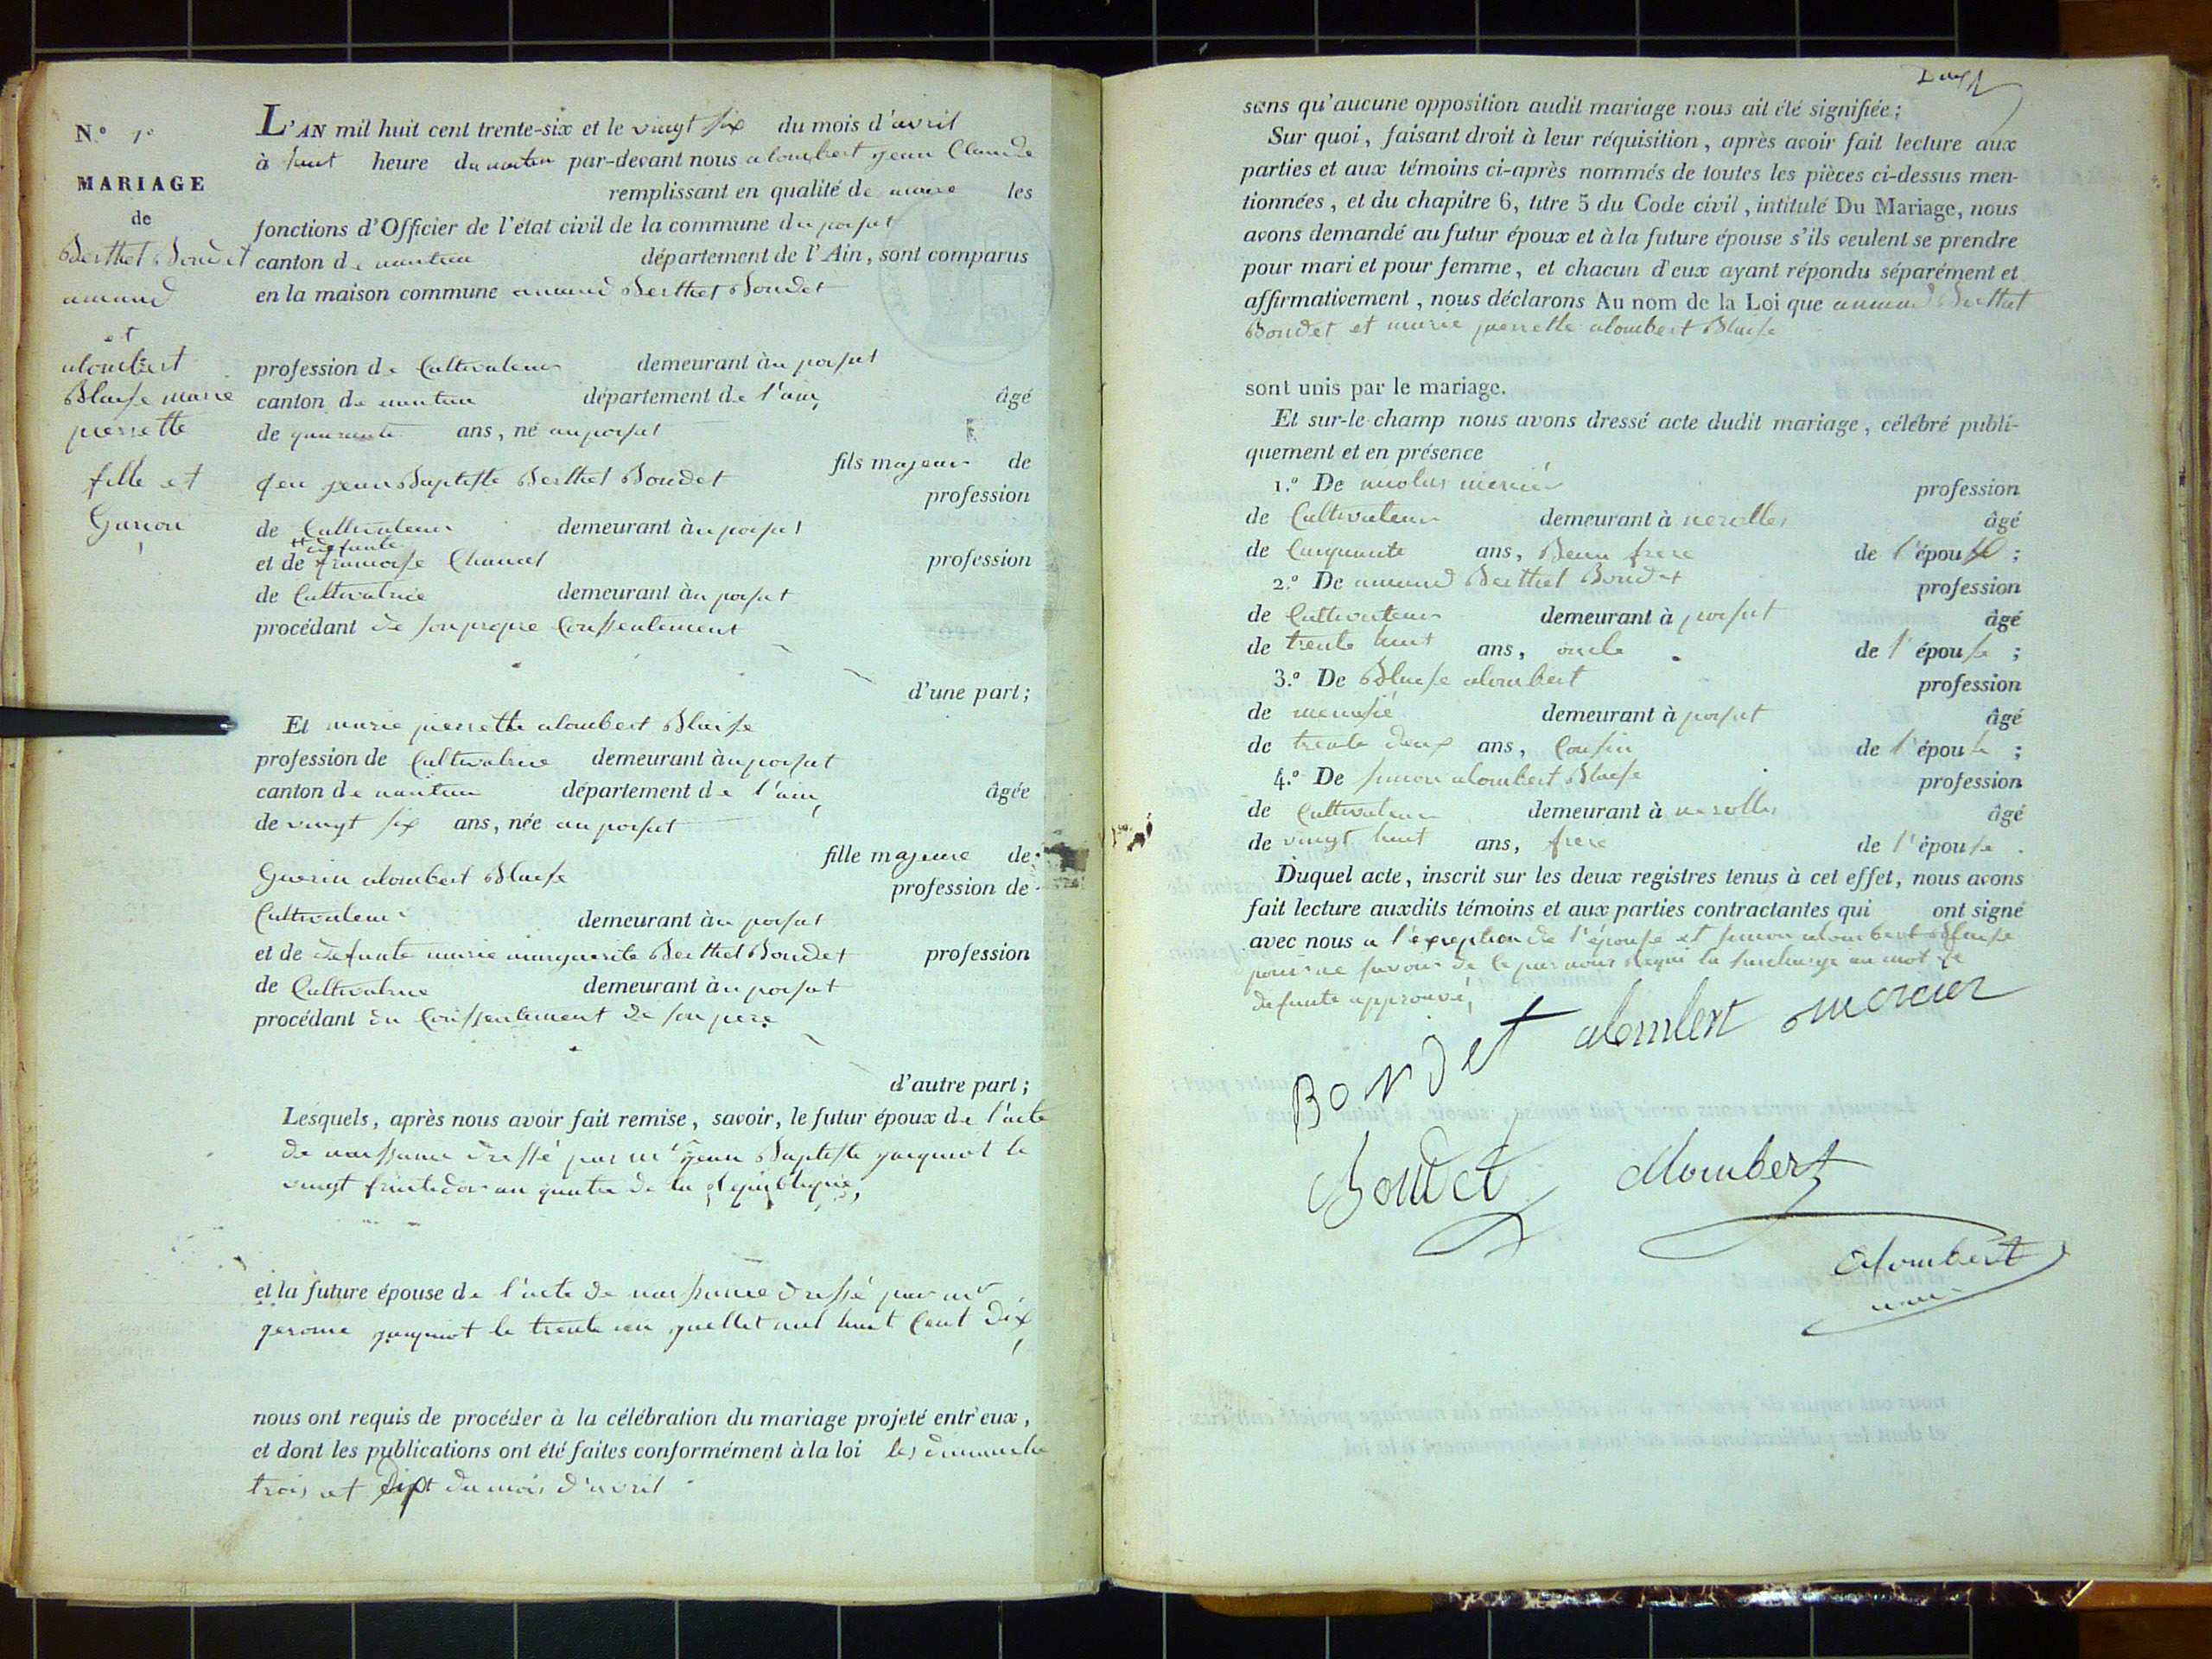 N.º 1º
MARIAGE
de
Berthet Boudet
amand
et
alombert
Blaise marie
pierrette
fille et
Garcon
L'AN mil huit cent trente-six et le vingt six du mois d'avril
à huit heure du matin par-devant nous alombert jean Claude
remplissant en qualité de maire les
fonctions d'Officier de l'état civil de la commune du poisat
canton de nantua département de l'Ain, sont comparus
en la maison commune amand Berthet Boudet
profession de Cultivateur demeurant àu poisat
canton de nantua département de l'ain, âgé
de quarante ans, né au poisat
fils majeur de
feu jean Baptiste Berthet Boudet
profession
de Cultivateur demeurant àu poisat
defunte
et de francoise Chanel profession
de Cultivatrice demeurant àu poisat
procédant de son propre Conssentement
d'une part;
Et marie pierrette alombert Blaise
profession de Cultivatrice demeurant àu poisat
canton de nantua département de l'ain, âgée
de vingt six ans, née au poisat
fille majeure de
Guerin alombert Blaise
profession de
Cultivateur demeurant àu poisat
et de defunte marie marguerite Berthet Boudet profession
de Cultivatrice demeurant àu poisat
procédant du Conssentement de son pere
d'autre part;
Lesquels, après nous avoir fait remise, savoir, le futur époux de l'acte
de naissance dressé par mr jean Baptiste le
vingt fructidor an quatre de la Republique,
et la future épouse de l'acte de naissance dressé par mr
gerome le trente un juellet mil huit Cent dix,
nous ont requis de procéder à la célébration du mariage projeté entr'eux,
et dont les publications ont été faites conformément à la loi les dimanche
trois et du mois d'avril
sans qu'aucune opposition audit mariage nous ait été signifiée;
Sur quoi, faisant droit à leur réquisition, après avoir fait lecture aux
parties et aux témoins ci-après nommés de toutes les pièces ci-dessus men-
tionnées, et du chapitre 6, titre 5 du Code civil, intitulé Du Mariage, nous
avons demandé au futur époux et à la future épouse s'ils veulent se prendre
pour mari et pour femme, et chacun d'eux ayant répondu séparément et
affirmativement, nous déclarons Au nom de la Loi que amand Berthet
Boudet et marie pierrette alombert Blaise
sont unis par le mariage.
Et sur-le-champ nous avons dressé acte dudit mariage, célébré publi-
quement et en présence
1.º De nicolas mercier profession
de Cultivateur demeurant à nerolles âgé
de Cinquante ans, Beau frere de l'épouse;
2.º De amand Berthet Boudet profession
de Cultivateur demeurant à poisat âgé
de trente huit ans, oncle de l'épouse;
3.º De Blaise alombert profession
de demeurant à poisat âgé
de trente deux ans, Cousin de l'épouse;
4.º De simon alombert Blaise profession
de Cultivateur demeurant à nerolles âgé
de vingt huit ans, frere de l'épouse.
Duquel acte, inscrit sur les deux registres tenus à cet effet, nous avons
fait lecture auxdits témoins et aux parties contractantes qui ont signé
avec nous a l'exception de l'épouse et simon alombert Blaise
pour ne savoir de ce par nous requi la surcharge au mot de
defunte approuvé,
Boudet alombert mercier
Boudet Alombert
Alombert
maire